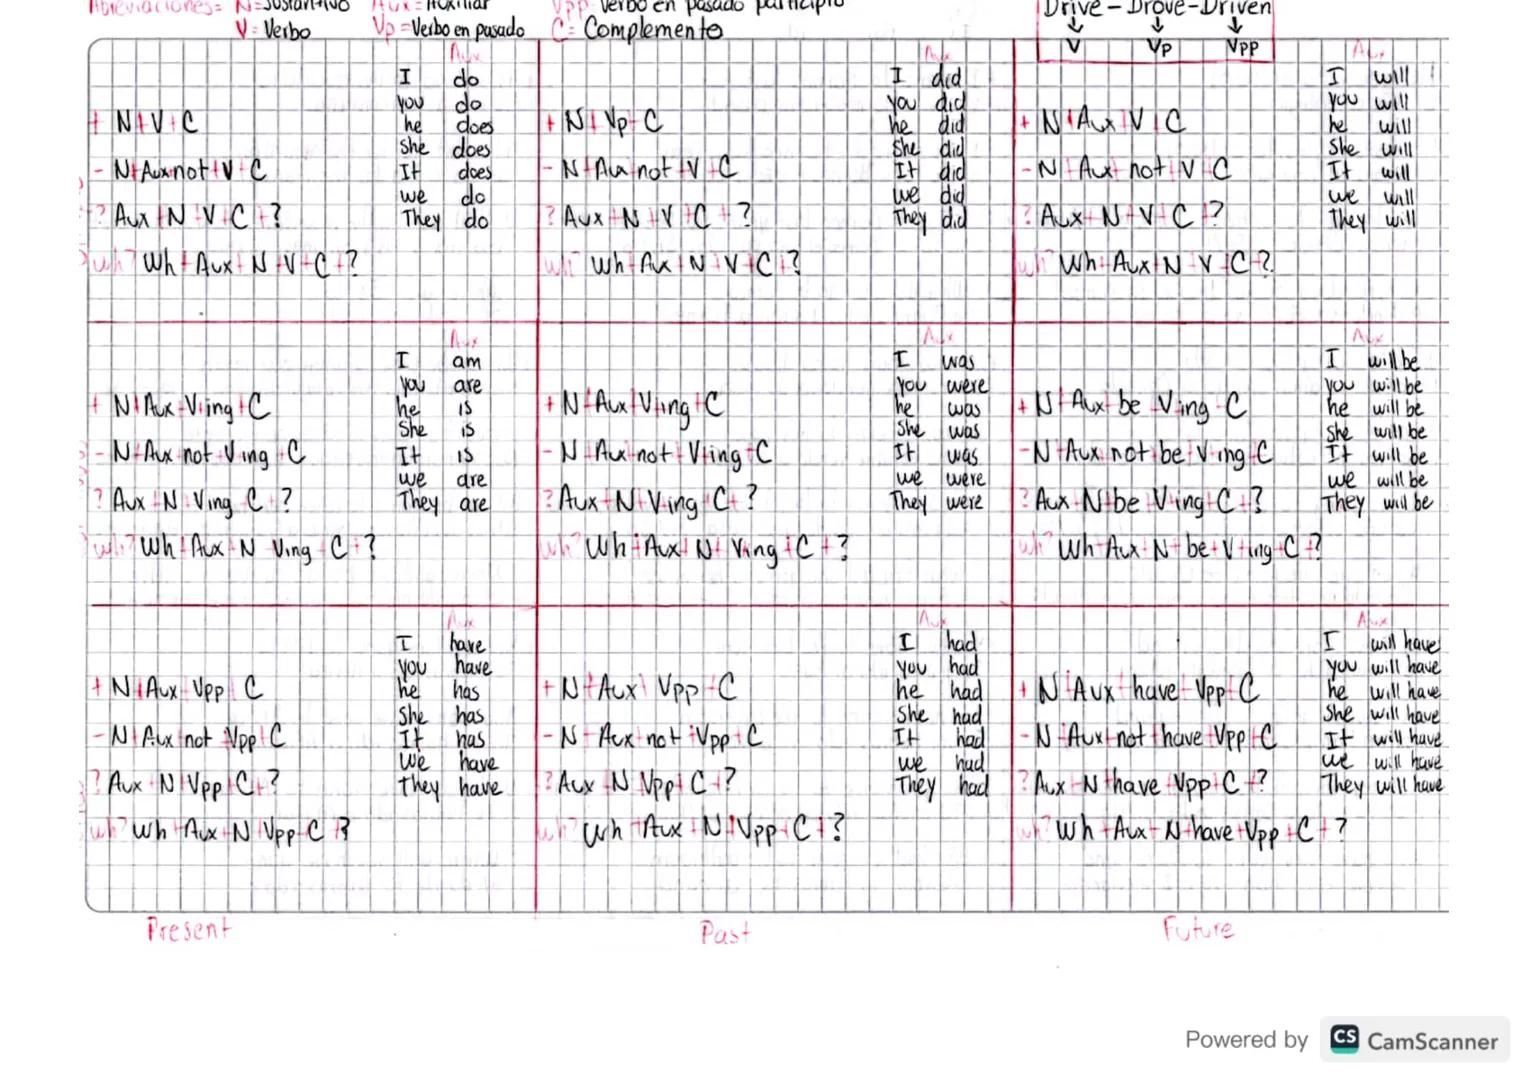 Abreviaciones= N=Sustantivo Aux=Auxiliar Vpp=Verbo en pasado participio
V=Verbo Vp=Verbo en pasado C=Complemento
Drive-Drove-Driven
V Vp Vpp
Aux
I do
you do
he does
She does
It does
we do
They do
+ N+V+C
- N+Aux+not+V+C
? Aux+N+V+C+?
wh? Wh+Aux+N+V+C+?
Aux
I did
you did
he did
She did
It did
we did
They did
+ N+Vp+C
- N+Aux+not+V+C
? Aux+N+V+C+?
wh? Wh+Aux+N+V+C+?
Aux
I will
you will
he will
She will
It will
we will
They will
+ N+Aux+V+C
- N+Aux+not+V+C
? Aux+N+V+C+?
wh? Wh+Aux+N+V+C+?
Aux
I am
you are
he is
She is
It is
we are
They are
+ N+Aux+V+ing+C
- N+Aux+not+V+ing+C
? Aux+N+V+ing+C+?
wh? Wh+Aux+N+V+ing+C+?
Aux
I was
you were
he was
She was
It was
we were
They were
+ N+Aux+V+ing+C
- N+Aux+not+V+ing+C
? Aux+N+V+ing+C+?
wh? Wh+Aux+N+V+ing+C+?
Aux
I will be
you will be
he will be
she will be
It will be
we will be
They will be
+ N+Aux+be+V+ing+C
- N+Aux+not+be+V+ing+C
? Aux+N+be+V+ing+C+?
wh? Wh+Aux+N+be+V+ing+C+?
Aux
I have
you have
he has
She has
It has
We have
They have
+ N+Aux+Vpp+C
- N+Aux+not+Vpp+C
? Aux+N+Vpp+C+?
wh? Wh+Aux+N+Vpp+C+?
Aux
I had
you had
he had
She had
It had
we had
They had
+ N+Aux+Vpp+C
- N+Aux+not+Vpp+C
? Aux+N+Vpp+C+?
wh? Wh+Aux+N+Vpp+C+?
Aux
I will have
you will have
he will have
She will have
It will have
we will have
They will have
+ N+Aux+have+Vpp+C
- N+Aux+not+have+Vpp+C
? Aux+N+have+Vpp+C+?
wh? Wh+Aux+N+have+Vpp+C+?
Present Past Future
Powered by CS CamScanner